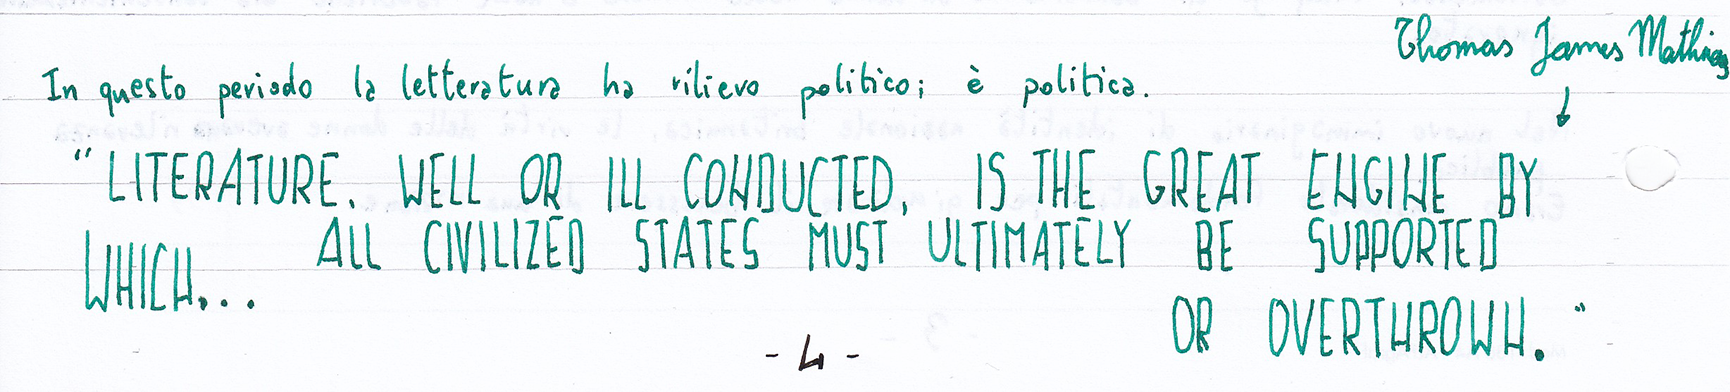 Thomas James Mathias
In questo periodo la letteratura ha rilievo politico; è politica.
"LITERATURE, WELL OR ILL CONDUCTED, IS THE GREAT ENGINE BY
WHICH... ALL CIVILIZED STATES MUST ULTIMATELY BE SUPPORTED
OR OVERTHROWN."
- 4 -